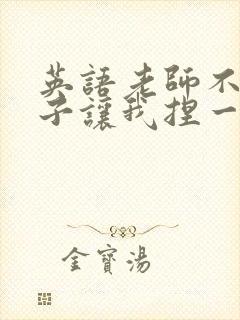 英語老師不
子讓我捏一
金寶湯